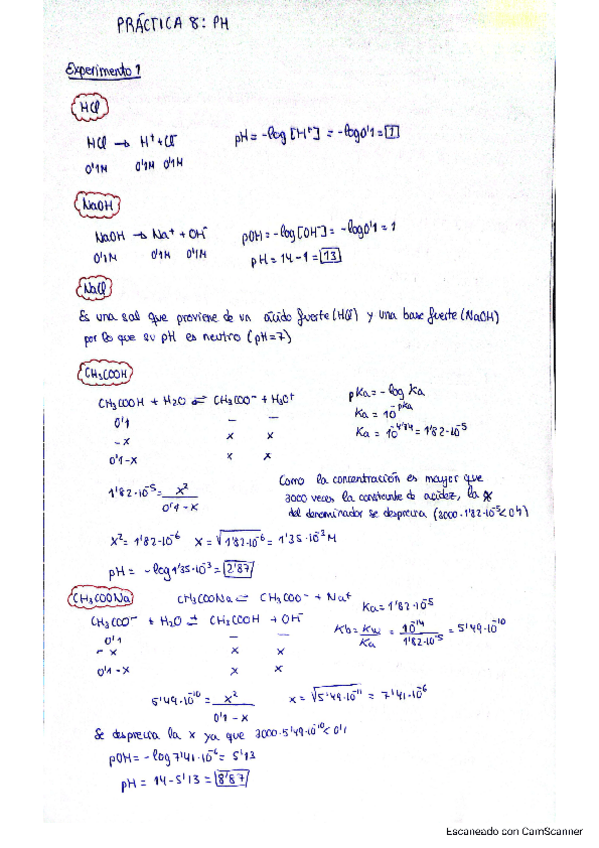 PRÁCTICA 8: PH
Experimento 1
HCl
HCl → H⁺ + Cl⁻
pH = -log [H⁺] = -log0'1 = 1
0'1M 0'1M 0'1M
NaOH
NaOH → Na⁺ + OH⁻
pOH = -log[OH⁻] = -log0'1 = 1
0'1M 0'1M 0'1M
pH = 14 - 1 = 13
NaCl
Es una sal que proviene de un ácido fuerte (HCl) y una base fuerte (NaOH)
por lo que su pH es neutro (pH=7)
CH₃COOH
CH₃COOH + H₂O ⇌ CH₃COO⁻ + H₃O⁺
pKa = -log Ka
0'1 - -
Ka = 10^-pKa
-x x x
Ka = 10^-4'74 = 1'82·10⁻⁵
0'1-x x x
1'82·10⁻⁵ = x² / 0'1-x
Como la concentración es mayor que
3000 veces la constante de acidez, la x
del denominador se desprecia (3000·1'82·10⁻⁵ < 0'1)
x² = 1'82·10⁻⁶ x = √1'82·10⁻⁶ = 1'35·10⁻³ M
pH = -log1'35·10⁻³ = 2'87
CH₃COONa
CH₃COONa ⇌ CH₃COO⁻ + Na⁺
Ka = 1'82·10⁻⁵
CH₃COO⁻ + H₂O ⇌ CH₃COOH + OH⁻
Kb = Kw / Ka = 10⁻¹⁴ / 1'82·10⁻⁵ = 5'49·10⁻¹⁰
0'1 - -
-x x x
0'1-x x x
5'49·10⁻¹⁰ = x² / 0'1-x
x = √5'49·10⁻¹¹ = 7'41·10⁻⁶
Se desprecia la x ya que 3000·5'49·10⁻¹⁰ < 0'1
pOH = -log7'41·10⁻⁶ = 5'13
pH = 14 - 5'13 = 8'87
Escaneado con CamScanner